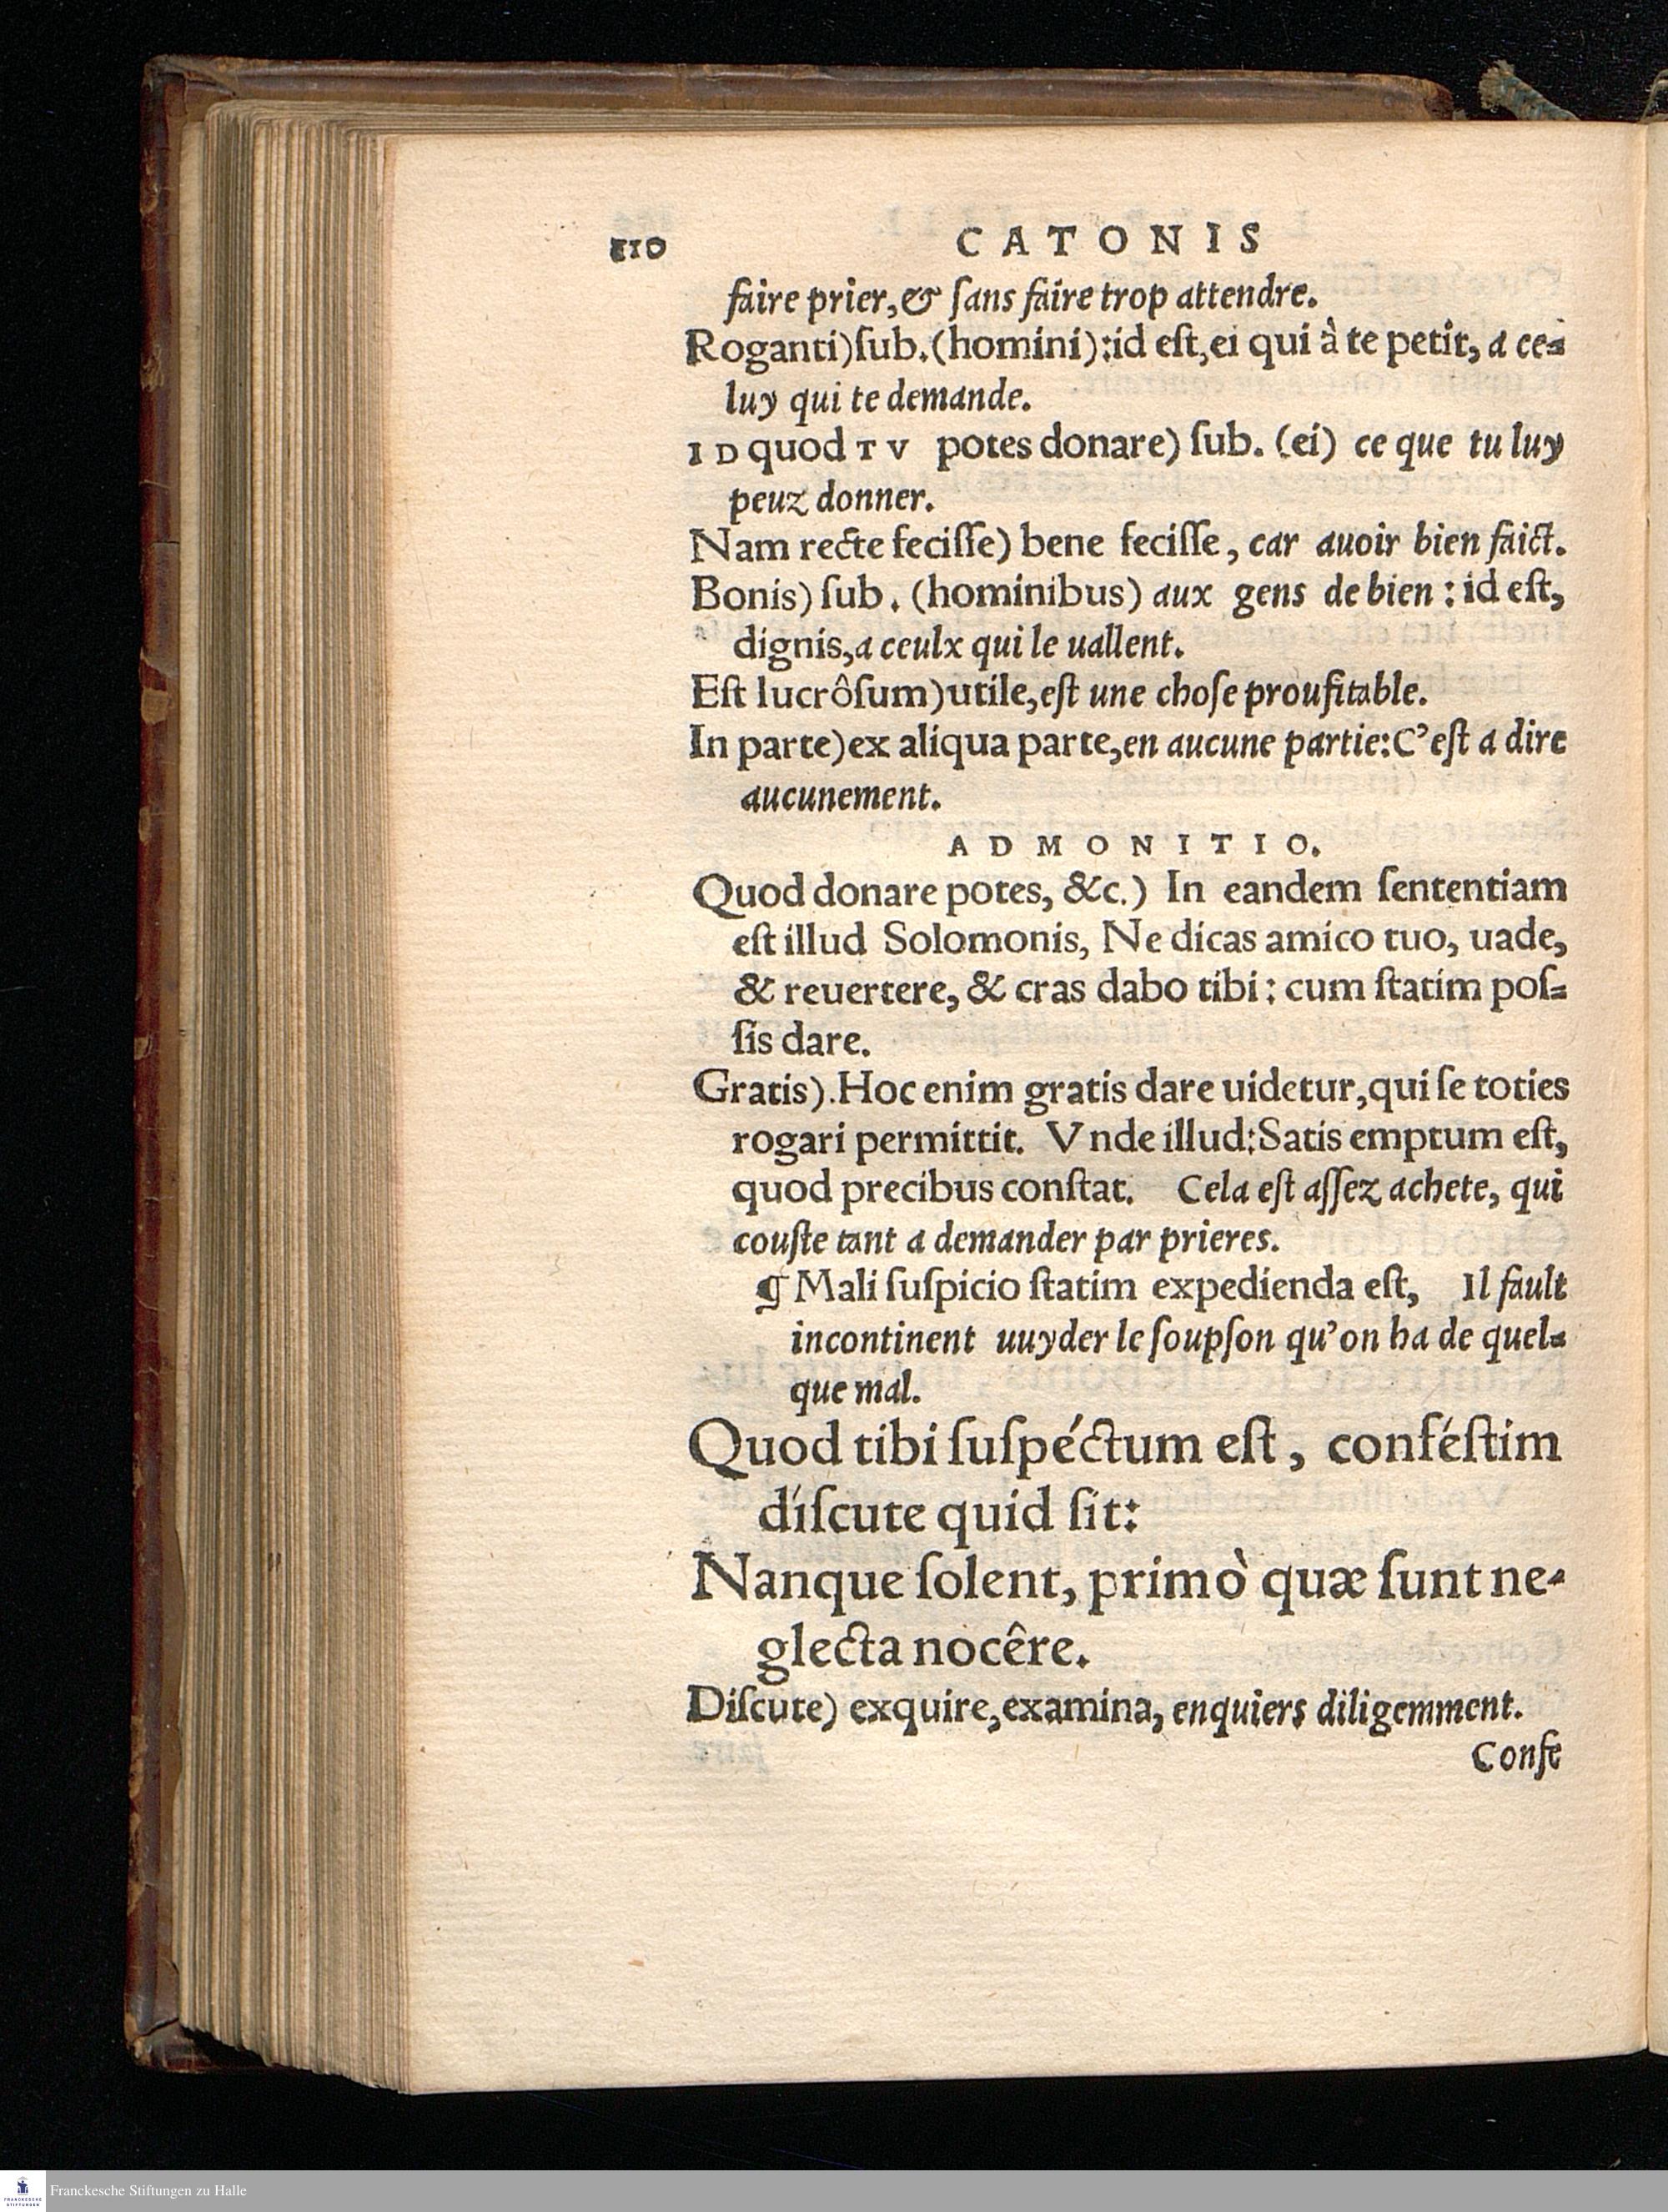 110 CATONIS
faire prier, & ſans faire trop attendre.
Roganti) ſub. (homini): id eſt, ei qui à te petit, a ce-
luy qui te demande.
ID quod TV potes donare) ſub. (ei) ce que tu luy
peuz donner.
Nam recte feciſſe) bene feciſſe, car auoir bien faict.
Bonis) ſub. (hominibus) aux gens de bien: id eſt,
dignis, a ceulx qui le uallent.
Eſt lucrôſum) utile, eſt une choſe proufitable.
In parte) ex aliqua parte, en aucune partie: C'eſt a dire
aucunement.
ADMONITIO.
Quod donare potes, &c.) In eandem ſententiam
eſt illud Solomonis, Ne dicas amico tuo, uade,
& reuertere, & cras dabo tibi: cum ſtatim poſ-
ſis dare.
Gratis). Hoc enim gratis dare uidetur, qui ſe toties
rogari permittit. Vnde illud: Satis emptum eſt,
quod precibus conſtat. Cela eſt aſſez achete, qui
couſte tant a demander par prieres.
¶ Mali ſuſpicio ſtatim expedienda eſt, Il fault
incontinent uuyder le ſoupſon qu'on ha de quel-
que mal.
Quod tibi ſuſpéctum eſt, conféſtim
díſcute quid ſit:
Nanque ſolent, primò quæ ſunt ne-
glecta nocêre.
Diſcute) exquire, examina, enquiers diligemment.
Confe
Franckesche Stiftungen zu Halle
FRANCKESCHE
STIFTUNGEN